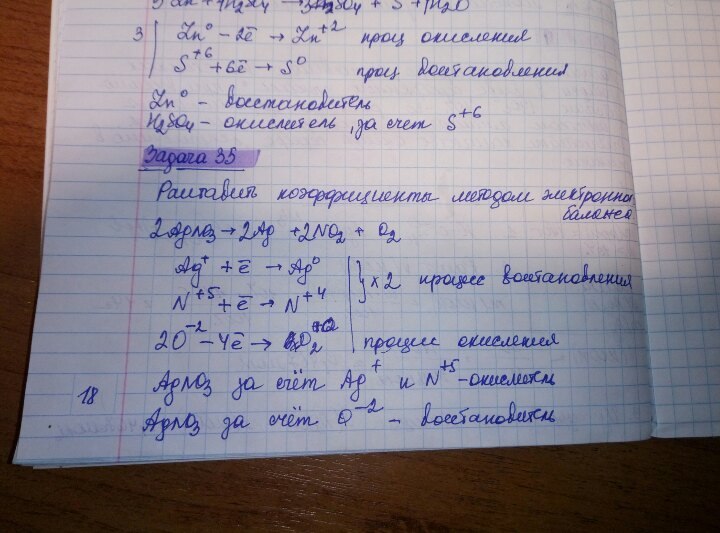 3Zn + 4H2SO4 → 3ZnSO4 + S + 4H2O
3 | Zn⁰ - 2ē → Zn⁺² проц окисления
S⁺⁶ + 6ē → S⁰ проц восстановления
Zn⁰ - восстановитель
H2SO4 - окислитель, за счет S⁺⁶
Задача 35
Раставить коэффициенты методом электронно
баланса
2AgNO3 → 2Ag + 2NO2 + O2
Ag⁺ + ē → Ag⁰
} x2 процесс восстановления
N⁺⁵ + ē → N⁺⁴
2O⁻² - 4ē → O2⁰ процесс окисления
AgNO3 за счёт Ag⁺ и N⁺⁵ - окислитель
18
AgNO3 за счёт O⁻² - восстановитель